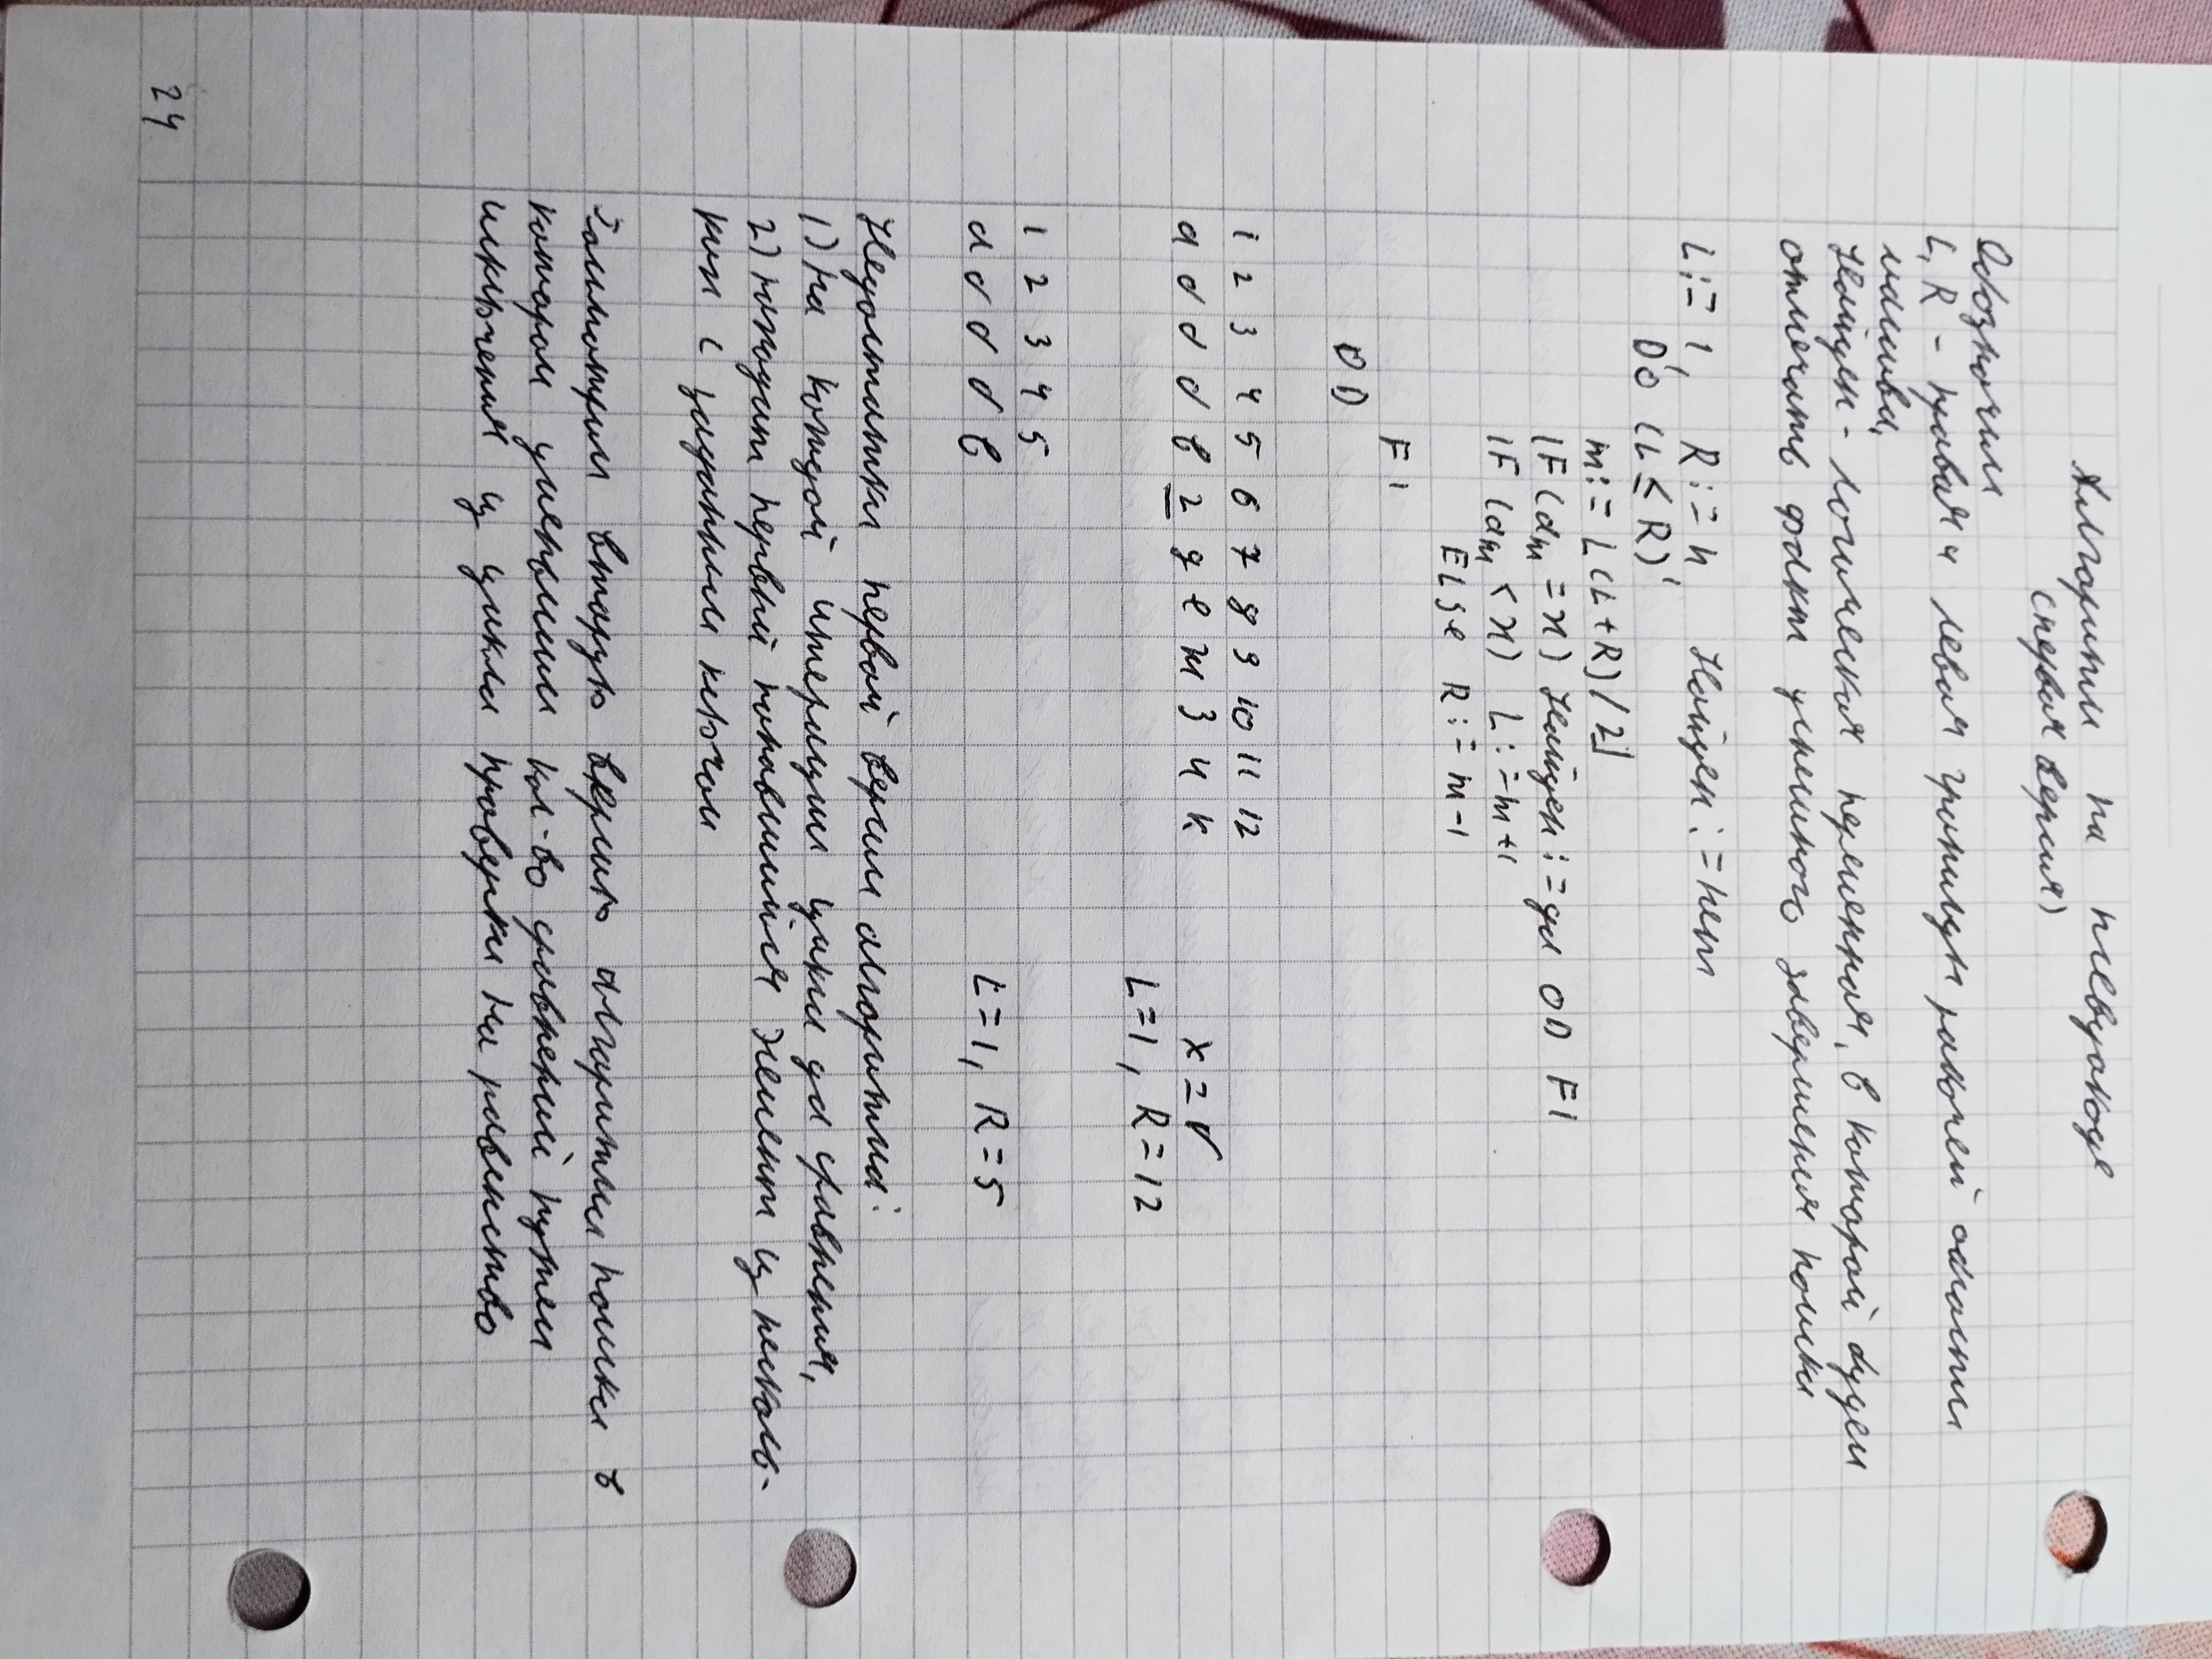 Алгоритм на псевдокоде
(первая версия)
Обозначим
L, R - правая и левая границы рабочей области
массива,
Найден - логическая переменная, в которой будем
отмечать факт успешного завершения поиска
L := 1, R := n, Найден := нет
DO (L ≤ R)
m := ⌊(L+R)/2⌋
IF (aₘ = x) Найден := да OD FI
IF (aₘ < x) L := m+1
ELSE R := m-1
FI
OD
1 2 3 4 5 6 7 8 9 10 11 12
а б б б в г д е ж з и к x = б
L=1, R=12
1 2 3 4 5
а б б б в L=1, R=5
Недостатки первой версии алгоритма:
1) На каждой итерации цикла два сравнения,
2) находит первый попавшийся элемент из несколь-
ких с заданным ключом
Рассмотрим вторую версию алгоритма поиска в
котором уменьшим кол-во сравнений путем
исключения из цикла проверки на равенство
24